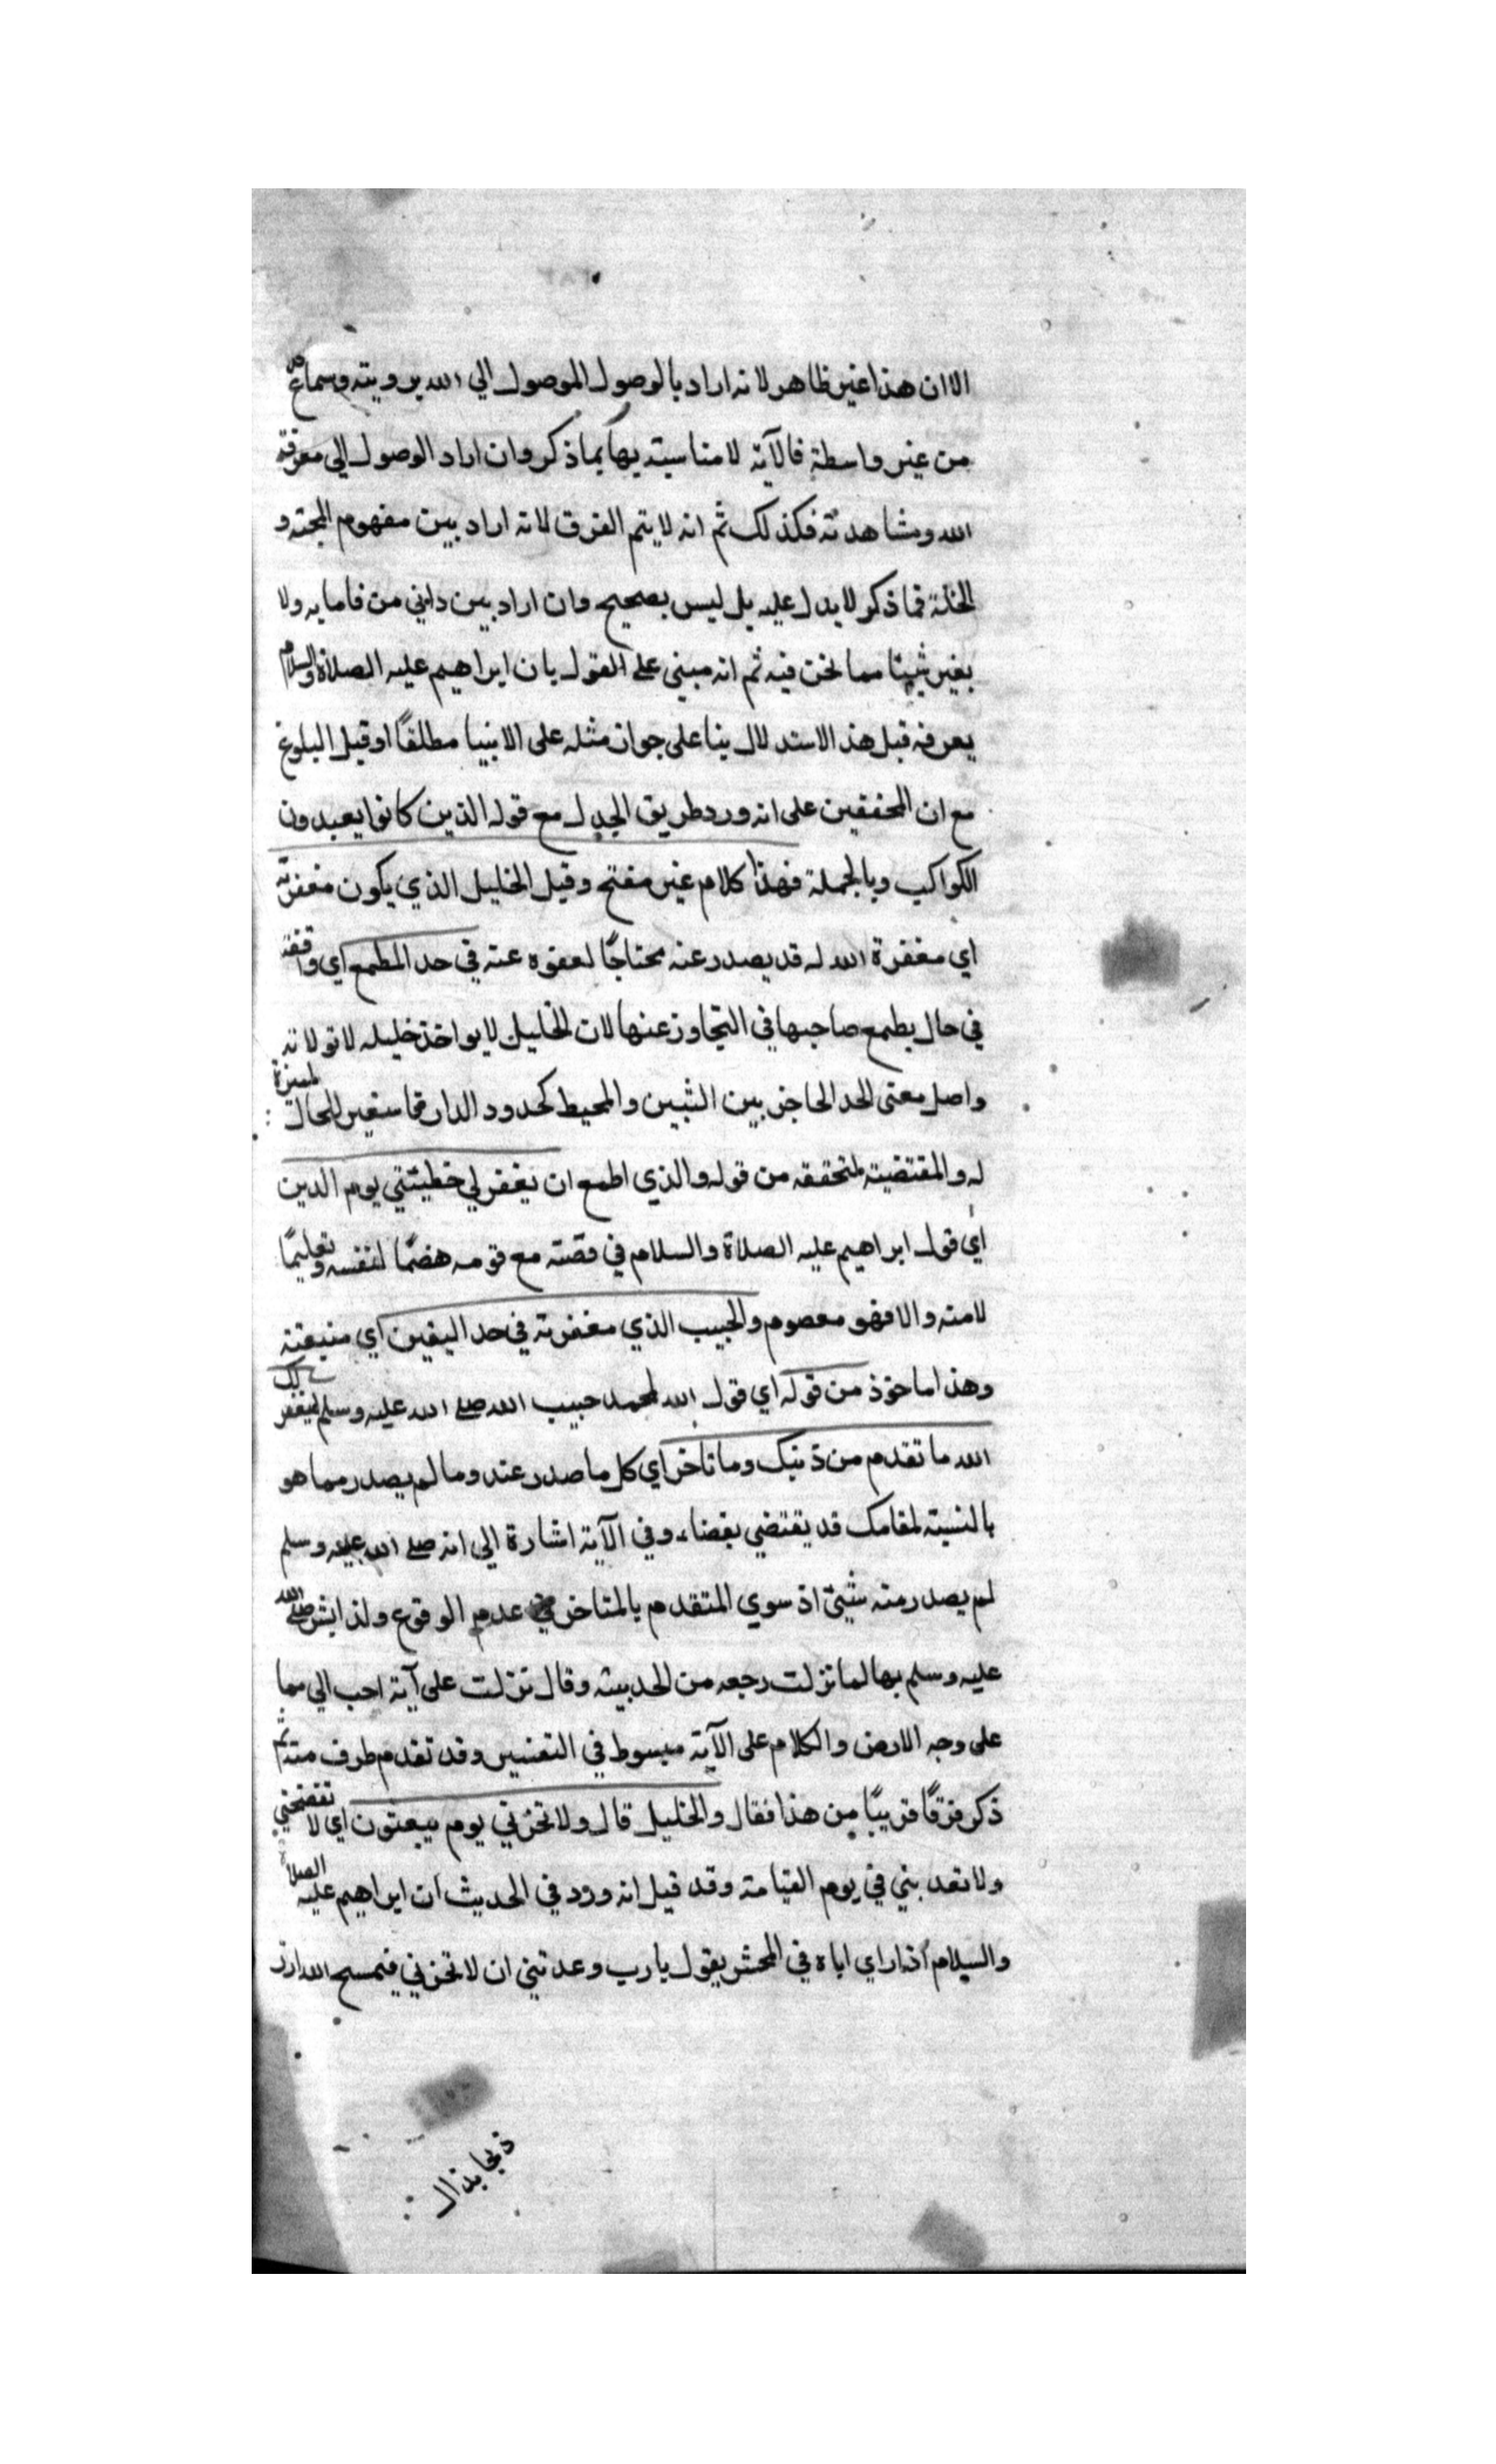 الا ان هذا غير ظاهر لانه اراد بالوصول الموصول الي الله برويته وسماع
من غير واسطة فالآية لا مناسبته بها بما ذكر وان اراد الوصول الي معرفة
الله ومشاهدته فكذلك ثم انه لا يتم الفرق لانه اراد بين مفهوم المحبته و
الخلة فما ذكر لا يدل عليه بل ليس بصحيح وان اراد بين ذاتي من قاما به ولا
بغير شيئا مما نحن فيه ثم انه مبني على القول بان ابراهيم عليه الصلاة والسلام
يعرفه قبل هذ الاستدلال بنا على جواز مثله على الانبيا مطلقًا او قبل البلوغ
مع ان المحققين على انه ورد طريق الجدل مع قوله الذين كانوا يعبدون
الكواكب وبالجملة فهذا كلام غير مفتح وقيل الخليل الذي يكون مغفرته
اي مغفرة الله له قد يصدر عنه محتاجًا لعفوه عنه في حد الطمع اي واقفة
في حال يطمع صاحبها في التجاوز عنها لان الخليل لا يواخذ خليله لا تولانه
واصل معنى الحد الحاجز بين الشيين والمحيط كحدود الدار فاستعير للحالة المميزة
له والمقتضيته لتحققه من قوله والذي اطمع ان يغفر لي خطيئتي يوم الدين
اي قول ابراهيم عليه الصلاة والسلام في قصته مع قومه هضمًا لنفسه وتعليمًا
لامته والا فهو معصوم والحبيب الذي مغفرته في حد اليقين اي متيقنة
وهذا ماخوذ من قوله اي قول الله لمحمد حبيب الله صلى الله عليه وسلم ليغفر لك
الله ما تقدم من ذنبك وما تاخر اي كل ما صدر عنه وما لم يصدر مما هو
بالنسبته لمقامك قد يقتضي بغضاء وفي الآية اشارة الي انه صلى الله عليه وسلم
لم يصدر منه شيئ اذ سوي المتقدم بالمتاخر في عدم الوقوع ولذا بشر صلى الله
عليه وسلم بها لما نزلت رجعه من الحديبية وقال نزلت علي آية احب الي مما
على وجه الارض والكلام على الآية مبسوط في التفسير وقد تقدم طرف منه ثم
ذكر فرقًا قريبًا من هذا فقال والخليل قال ولا تخزني يوم يبعثون اي لا تفضحني
ولا تعذبني في يوم القيامة وقد قيل انه ورد في الحديث ان ابراهيم عليه الصلاة
والسلام اذا راي اباه في المحشر يقول يارب وعدتني ان لا تخزني فيمسح الله ازر